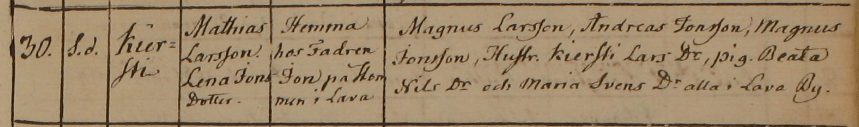 30. S.d. Kier= Mathias Hemma Magnus Larsson, Andreas Jonsson, Magnus
sti Larsson. hos Fadren Jonsson, Hustr. Kiersti Lars Dr, pig. Beata
Lena Jons Jon på Hem Nils Dr och Maria Svens Dr alla i Lava By.
Dotter. mon i Lava